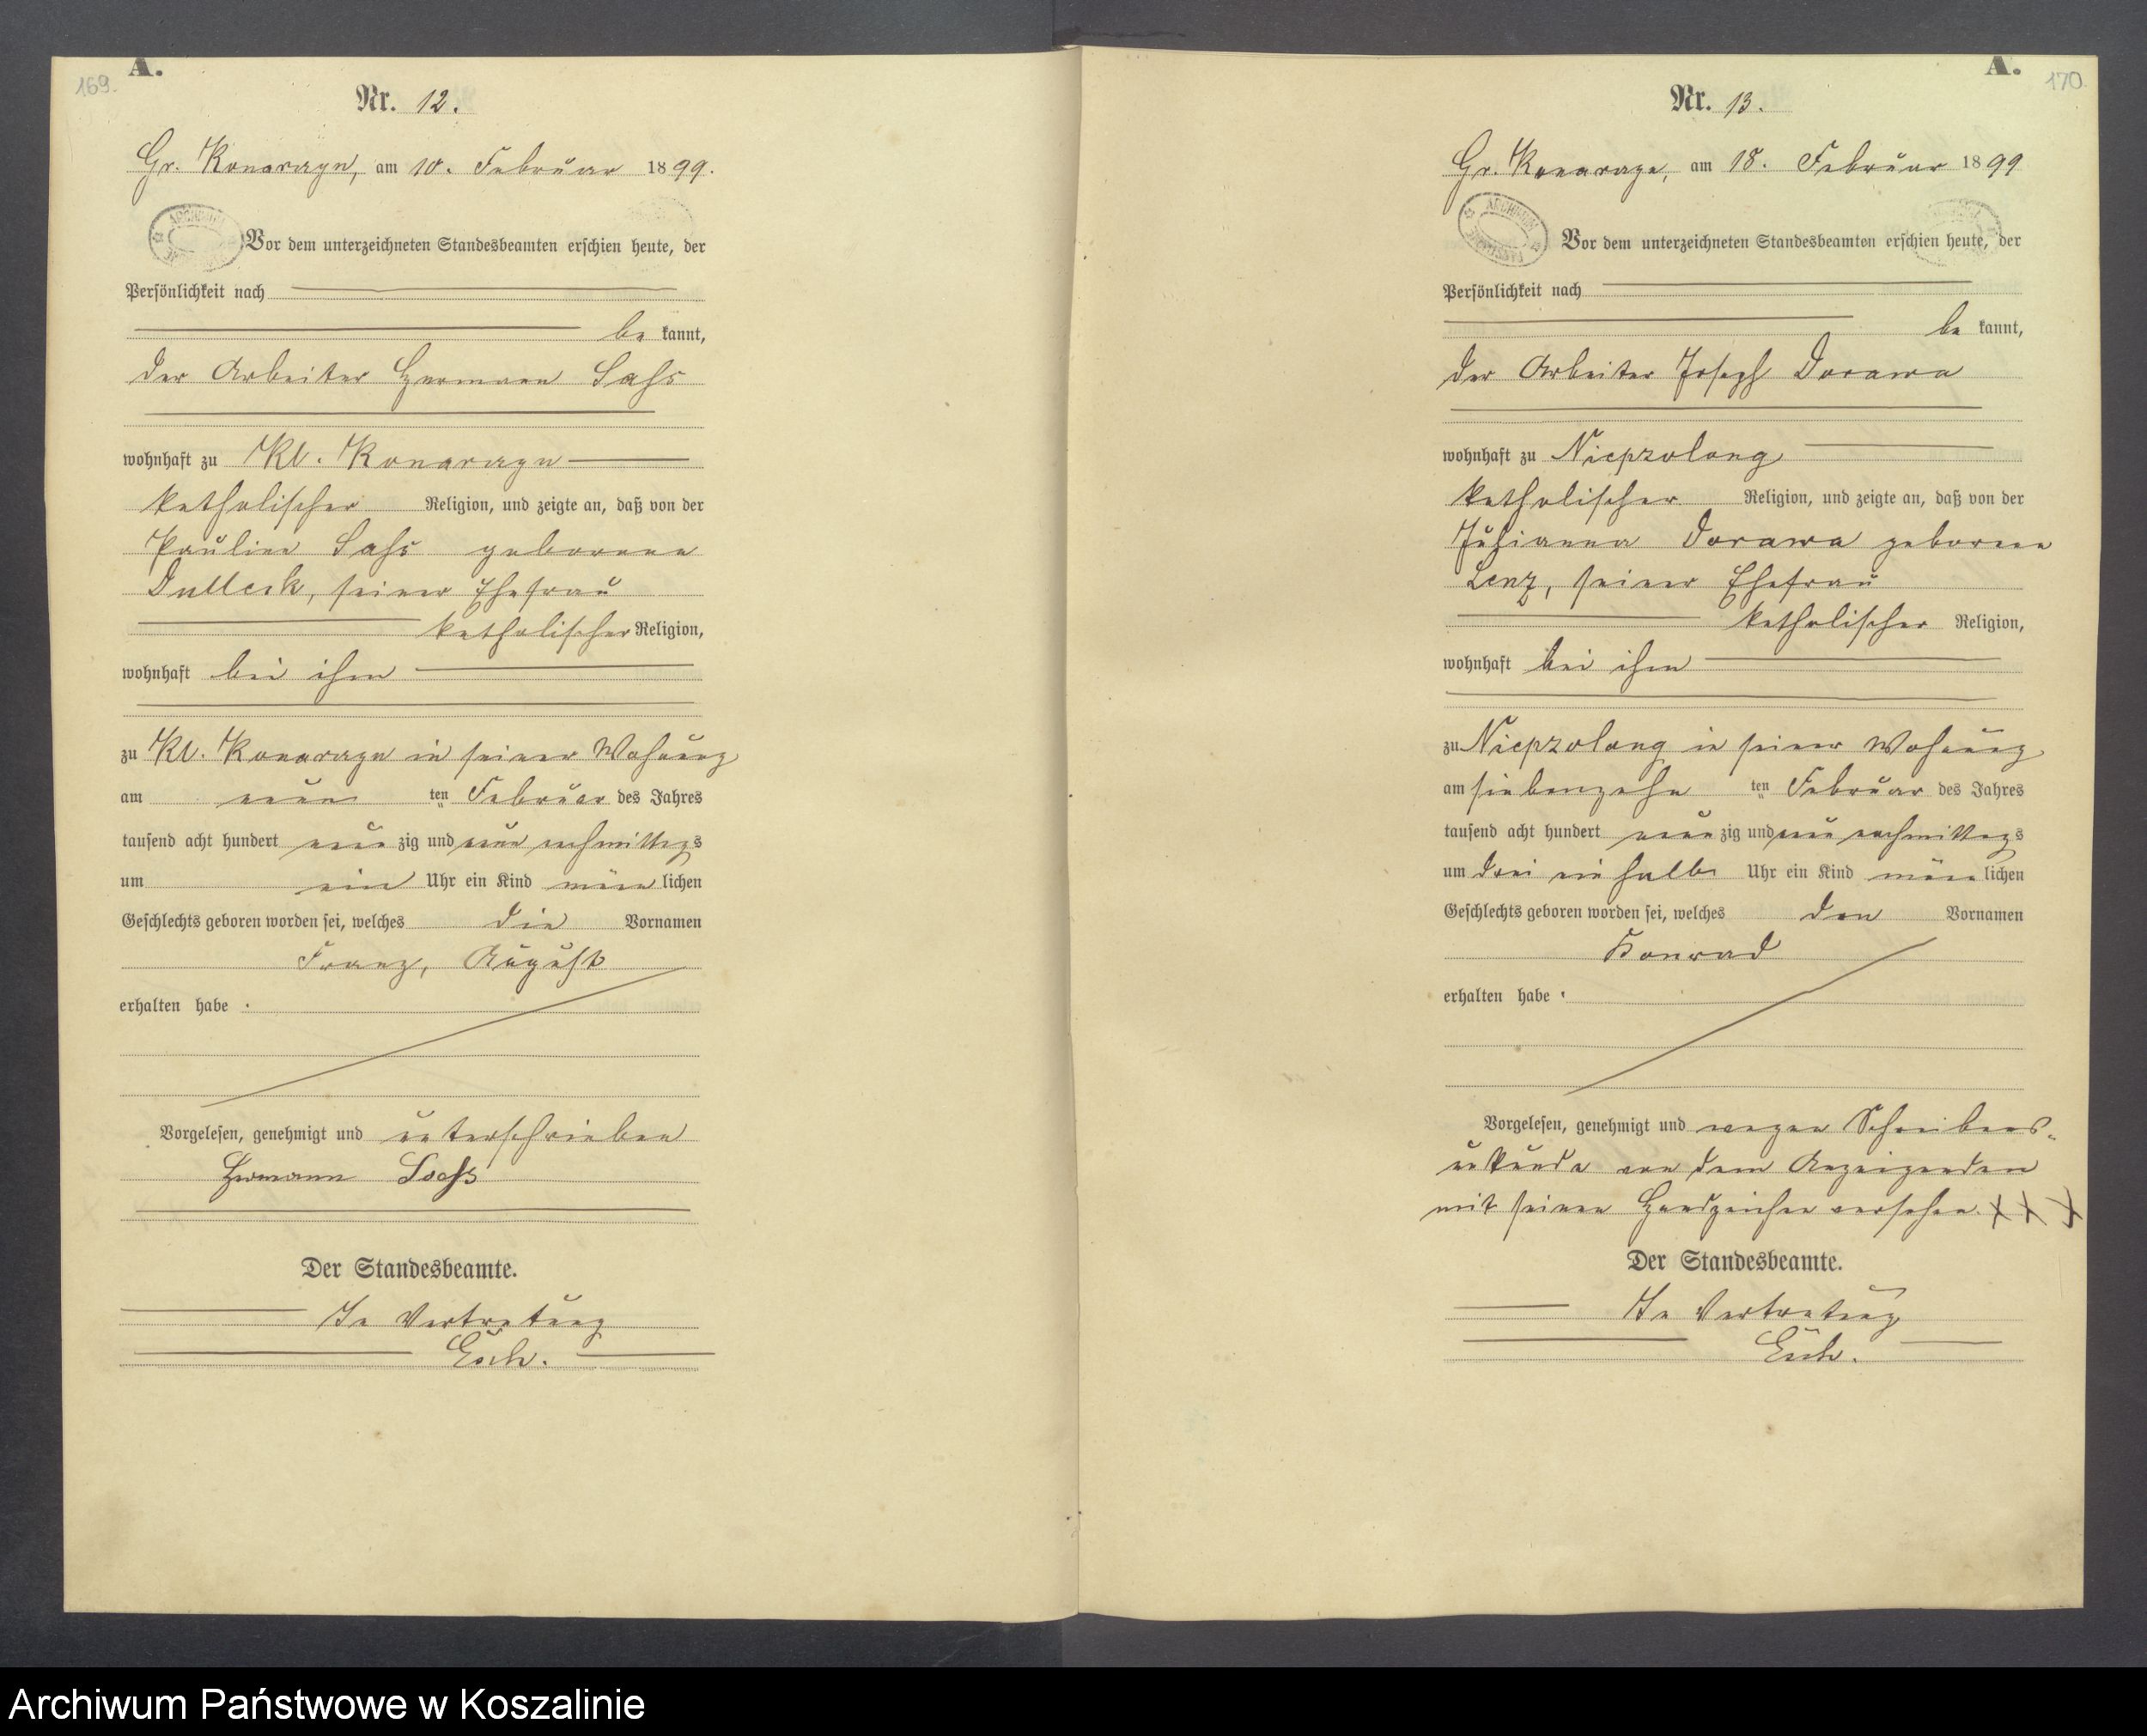 169.
A.
Nr. 12.
Gr. Konarczyn, am 10. Februar 1899.
Vor dem unterzeichneten Standesbeamten erschien heute, der
Persönlichkeit nach
be kannt,
der Arbeiter Hermann Sass
wohnhaft zu Kl. Konarczyn
katholischer Religion, und zeigte an, daß von der
Pauline Sass geborene
Dulleck, seiner Ehefrau
katholischer Religion,
wohnhaft bei ihm
zu Kl. Konarczyn in seiner Wohnung
am neun ten Februar des Jahres
tausend acht hundert neun zig und neun nachmittags
um ein Uhr ein Kind männ lichen
Geschlechts geboren worden sei, welches die Vornamen
Franz, August
erhalten habe.
Vorgelesen, genehmigt und unterschrieben
Hermann Sass
Der Standesbeamte.
In Vertretung
170.
A.
Nr. 13.
Gr. Konarczyn, am 18. Februar 1899
Vor dem unterzeichneten Standesbeamten erschien heute, der
Persönlichkeit nach
be kannt,
der Arbeiter Joseph Dorawa
wohnhaft zu Niepzolong
katholischer Religion, und zeigte an, daß von der
Julianna Dorawa geborene
Lenz, seiner Ehefrau
katholischer Religion,
wohnhaft bei ihm
zu Niepzolong in seiner Wohnung
am siebenzehn ten Februar des Jahres
tausend acht hundert neun zig und neun nachmittags
um drei ein halb Uhr ein Kind männ lichen
Geschlechts geboren worden sei, welches den Vornamen
Konrad
erhalten habe.
Vorgelesen, genehmigt und wegen Schreibens-
unkunde von dem Anzeigenden
mit seinen Handzeichen versehen. X X X
Der Standesbeamte.
In Vertretung
Archiwum Państwowe w Koszalinie